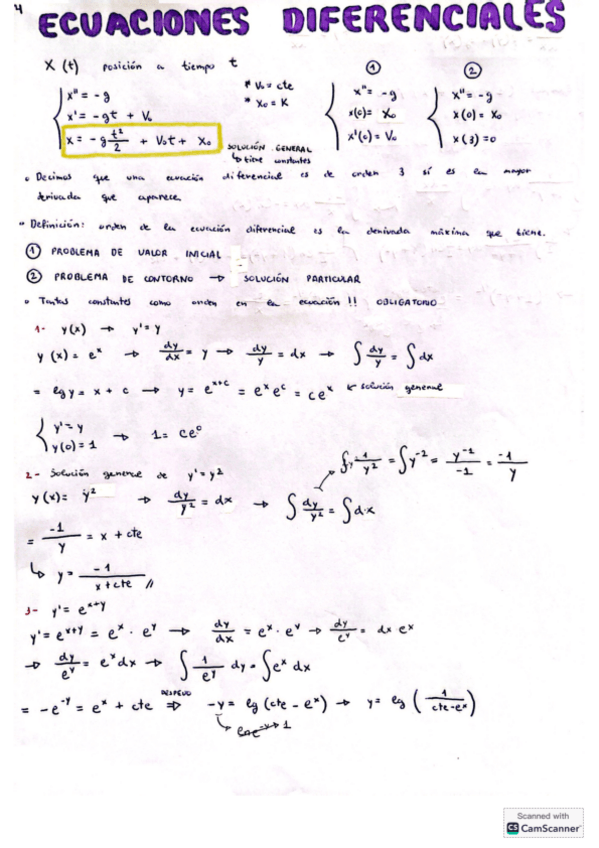 4
ECUACIONES DIFERENCIALES
X (t) posición a tiempo t
x'' = -g
x' = -gt + V₀
x = -g t²/2 + V₀t + X₀
* V₀ = cte
* X₀ = K
SOLUCIÓN GENERAL
↳ tiene constantes
①
x'' = -g
x(0) = X₀
x'(0) = V₀
②
x'' = -g
x(0) = X₀
x(3) = 0
• Decimos que una ecuación diferencial es de orden 3 sí es la mayor
derivada que aparece.
• Definición: orden de la ecuación diferencial es la derivada máxima que tiene.
① PROBLEMA DE VALOR INICIAL
② PROBLEMA DE CONTORNO → SOLUCIÓN PARTICULAR
• Tantas constantes como orden en la ecuación !! OBLIGATORIO
1- y(x) → y' = y
y(x) = eˣ → dy/dx = y → dy/y = dx → ∫ dy/y = ∫ dx
= lg y = x + c → y = e^(x+c) = eˣ e^c = c eˣ ↙ solución general
y' = y
y(0) = 1 → 1 = c e⁰
2- Solución general de y' = y²
y(x) = y² → dy/y² = dx → ∫ dy/y² = ∫ dx
∫ y⁻² = y⁻¹/-1 = -1/y
= -1/y = x + cte
↳ y = -1/(x + cte) //
3- y' = e^(x+y)
y' = e^(x+y) = eˣ · e^y → dy/dx = eˣ · e^y → dy/e^y = dx eˣ
→ dy/e^y = eˣ dx → ∫ 1/e^y dy = ∫ eˣ dx
= -e^(-y) = eˣ + cte DESPEJO ⇒ -y = lg (cte - eˣ) → y = lg (1/(cte - eˣ))
Scanned with
CS CamScanner